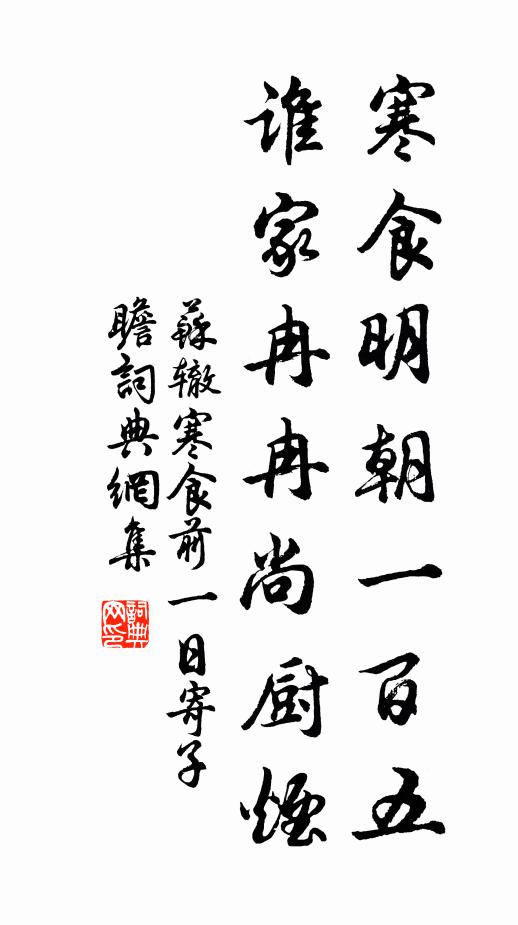 寒食明朝一百五
誰家冉冉尚厨煙
蘇辙寒食前一日寄子
瞻詞典網集
詞典
网印